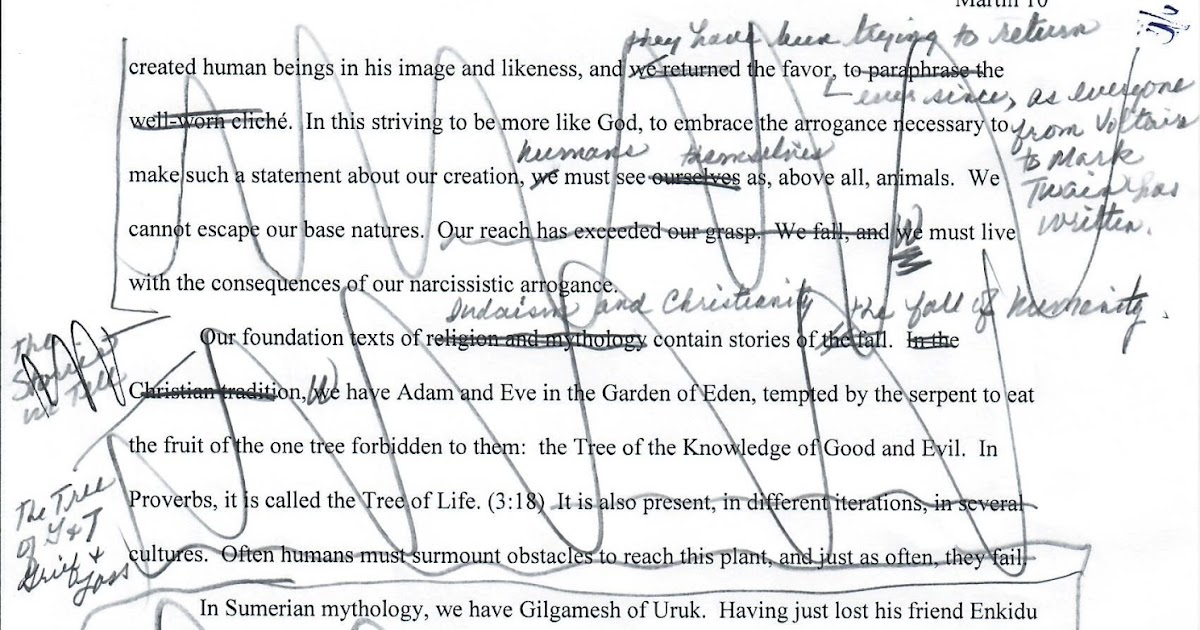 Martin 10
they have been trying to return
created human beings in his image and likeness, and we returned the favor, to paraphrase the
ever since, as everyone
well-worn cliché. In this striving to be more like God, to embrace the arrogance necessary to
from Voltaire
to Mark
Twain has
written.
humans themselves
make such a statement about our creation, we must see ourselves as, above all, animals. We
cannot escape our base natures. Our reach has exceeded our grasp. We fall, and we must live
W
with the consequences of our narcissistic arrogance.
Judaism and Christianity the fall of humanity.
The
Stories
we Tell
Our foundation texts of religion and mythology contain stories of the fall. In the
Christian tradition, we have Adam and Eve in the Garden of Eden, tempted by the serpent to eat
W
the fruit of the one tree forbidden to them: the Tree of the Knowledge of Good and Evil. In
The Tree
of
Grief +
Loss
Proverbs, it is called the Tree of Life. (3:18) It is also present, in different iterations, in several
cultures. Often humans must surmount obstacles to reach this plant, and just as often, they fail.
In Sumerian mythology, we have Gilgamesh of Uruk. Having just lost his friend Enkidu